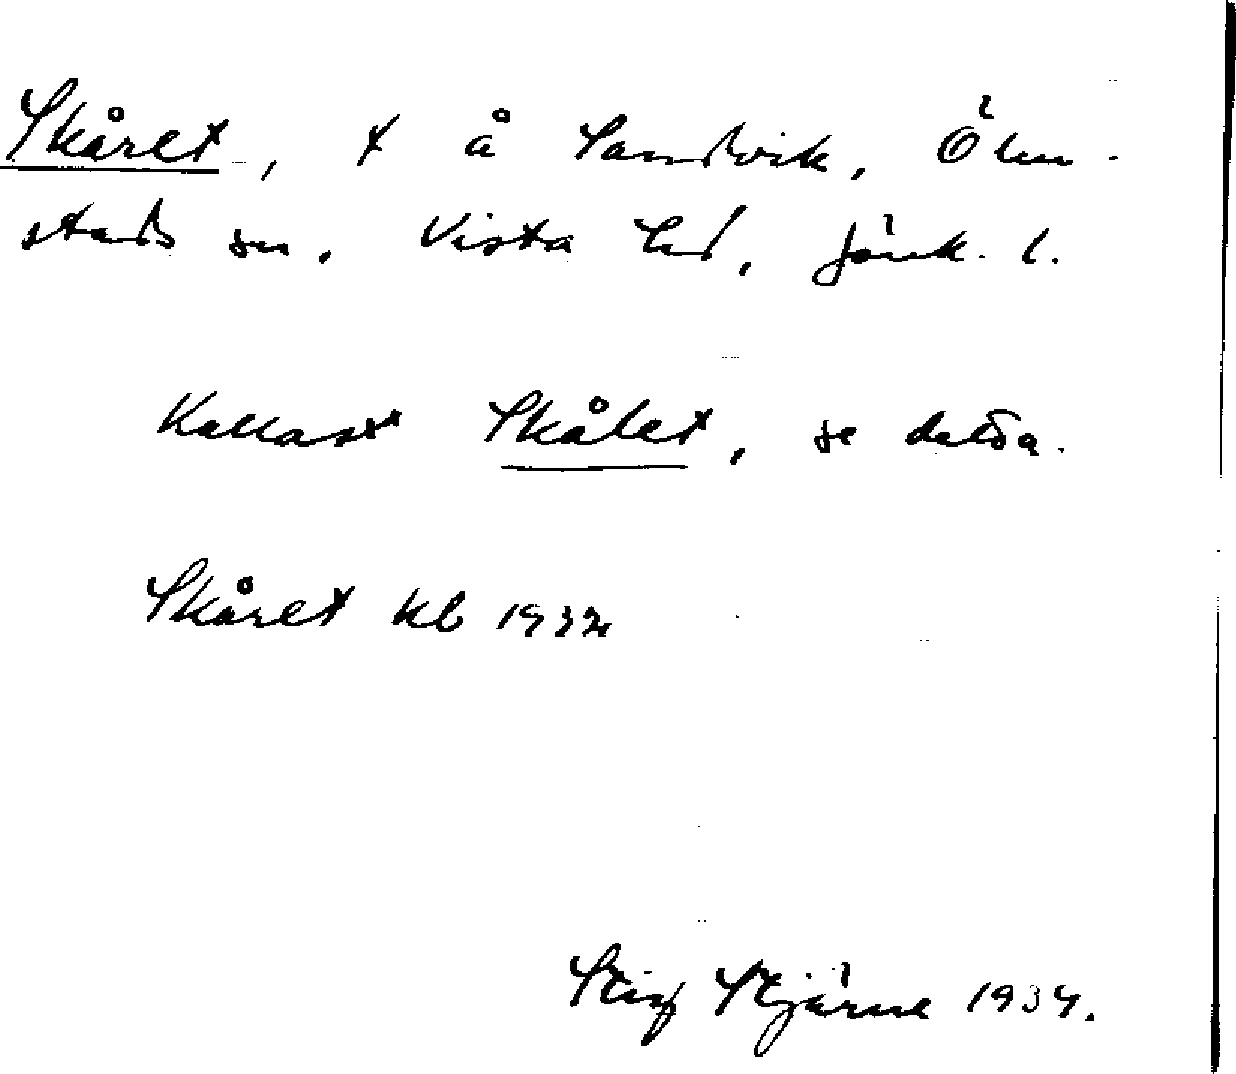 Skåret, t å Sandvik, Ölm-
stads sn. Vista hd, Jönk. l.
Kallast Skålet, se detta.
Skåret kb 1932
Stig Stjärne 1934.